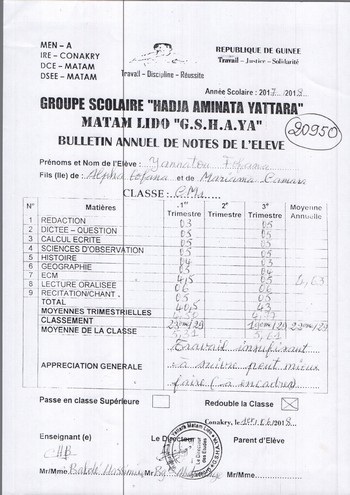 MEN – A
IRE – CONAKRY
DCE – MATAM
DSEE – MATAM
REPUBLIQUE DE GUINEE
Travail – Justice – Solidarité
Travail – Discipline – Réussite
Année Scolaire : 2017 /2018
GROUPE SCOLAIRE "HADJA AMINATA YATTARA"
MATAM LIDO "G.S.H.A.YA"
20950
BULLETIN ANNUEL DE NOTES DE L'ELEVE
Prénoms et Nom de l'Elève : Yannatou Fofana
Fils (lle) de : Alpha Fofana et de Mariama Camara
CLASSE :
N° Matières 1er Trimestre 2e Trimestre 3e Trimestre Moyenne Annuelle
1 REDACTION 03 05
2 DICTEE – QUESTION 05 05
3 CALCUL ECRITE 05 05
4 SCIENCES D'OBSERVATION 05 05
5 HISTOIRE 04 03
6 GEOGRAPHIE 03 04
7 ECM 4,5 05
8 LECTURE ORALISEE 06 05
9 RECITATION/CHANT 05 06
TOTAL 40,5 43
MOYENNES TRIMESTRIELLES
CLASSEMENT
MOYENNE DE LA CLASSE
APPRECIATION GENERALE
Travail insuffisant
à suivre peut mieux
faire (à encadrer)
Passe en classe Supérieure
Redouble la Classe
Conakry, le
Enseignant (e)
Le Directeur
Parent d'Elève
Mr/Mme.
Mr/Mme.